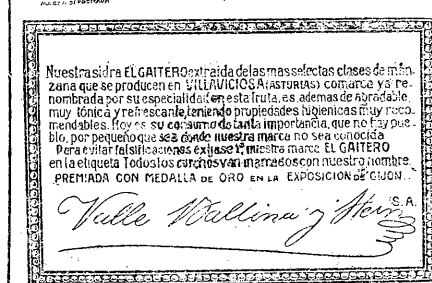 MARCA DEPOSITADA
Nuestra sidra EL GAITERO extraida de las mas selectas clases de man-
zana que se producen en VILLAVICIOSA (ASTURIAS) comarca ya re-
nombrada por su especialidad en esta fruta, es, ademas de agradable,
muy tónica y refrescante, teniendo propiedades higienicas muy reco-
mendables. Hoy es su consumo de tanta importancia, que no hay pue-
blo, por pequeño que sea donde nuestra marca no sea conocida
Para evitar falsificaciones exijase nuestra marca EL GAITERO
en la etiqueta Todos los corchos van marcados con nuestro nombre.
PREMIADA CON MEDALLA DE ORO EN LA EXPOSICION DE GIJON.
Valle Ballina y Fern S.A.